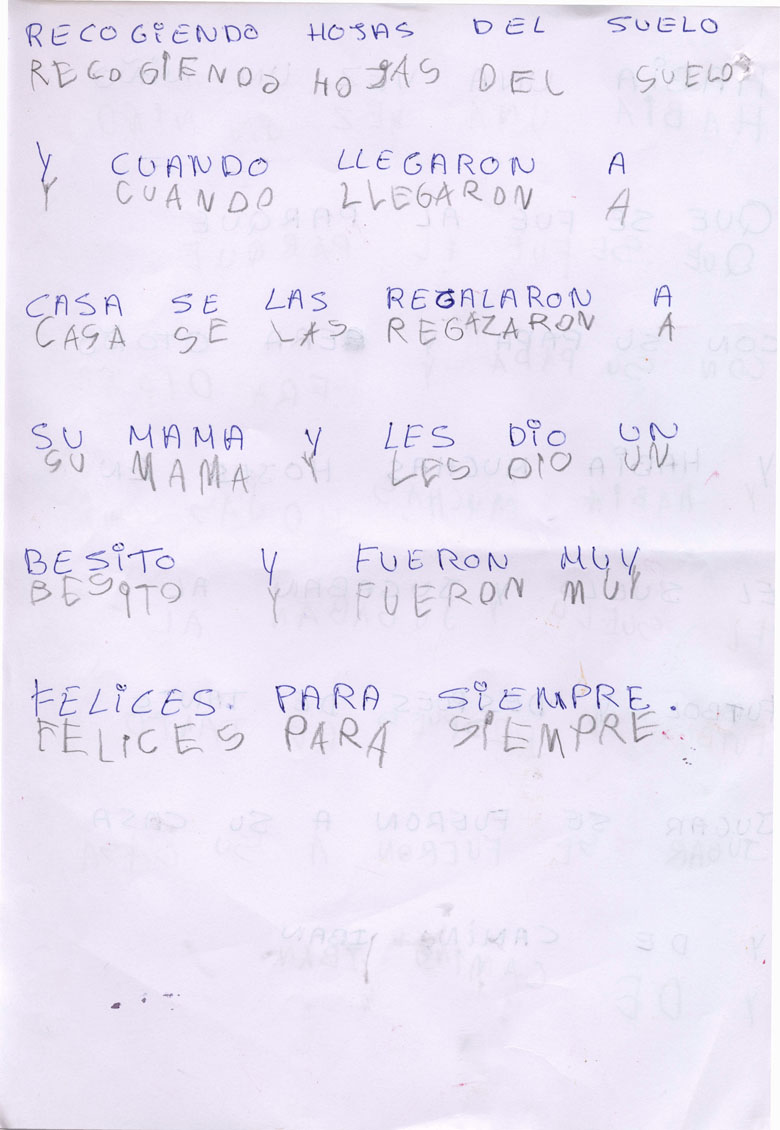 RECOGiENDO HOJAS DEL SUELO
RECOGiENDO HOJAS DEL SUELO
Y CUANDO LLEGARON A
Y CUANDO LLEGARON A
CASA SE LAS REGALARON A
CASA SE LAS REGAZARON A
SU MAMA Y LES DiO UN
SU MAMA Y LES DIO UN
BESiTO Y FUERON MUY
BESITO Y FUERON MUY
FELiCES. PARA SiEMPRE.
FELiCES PARA SiEMPRE.